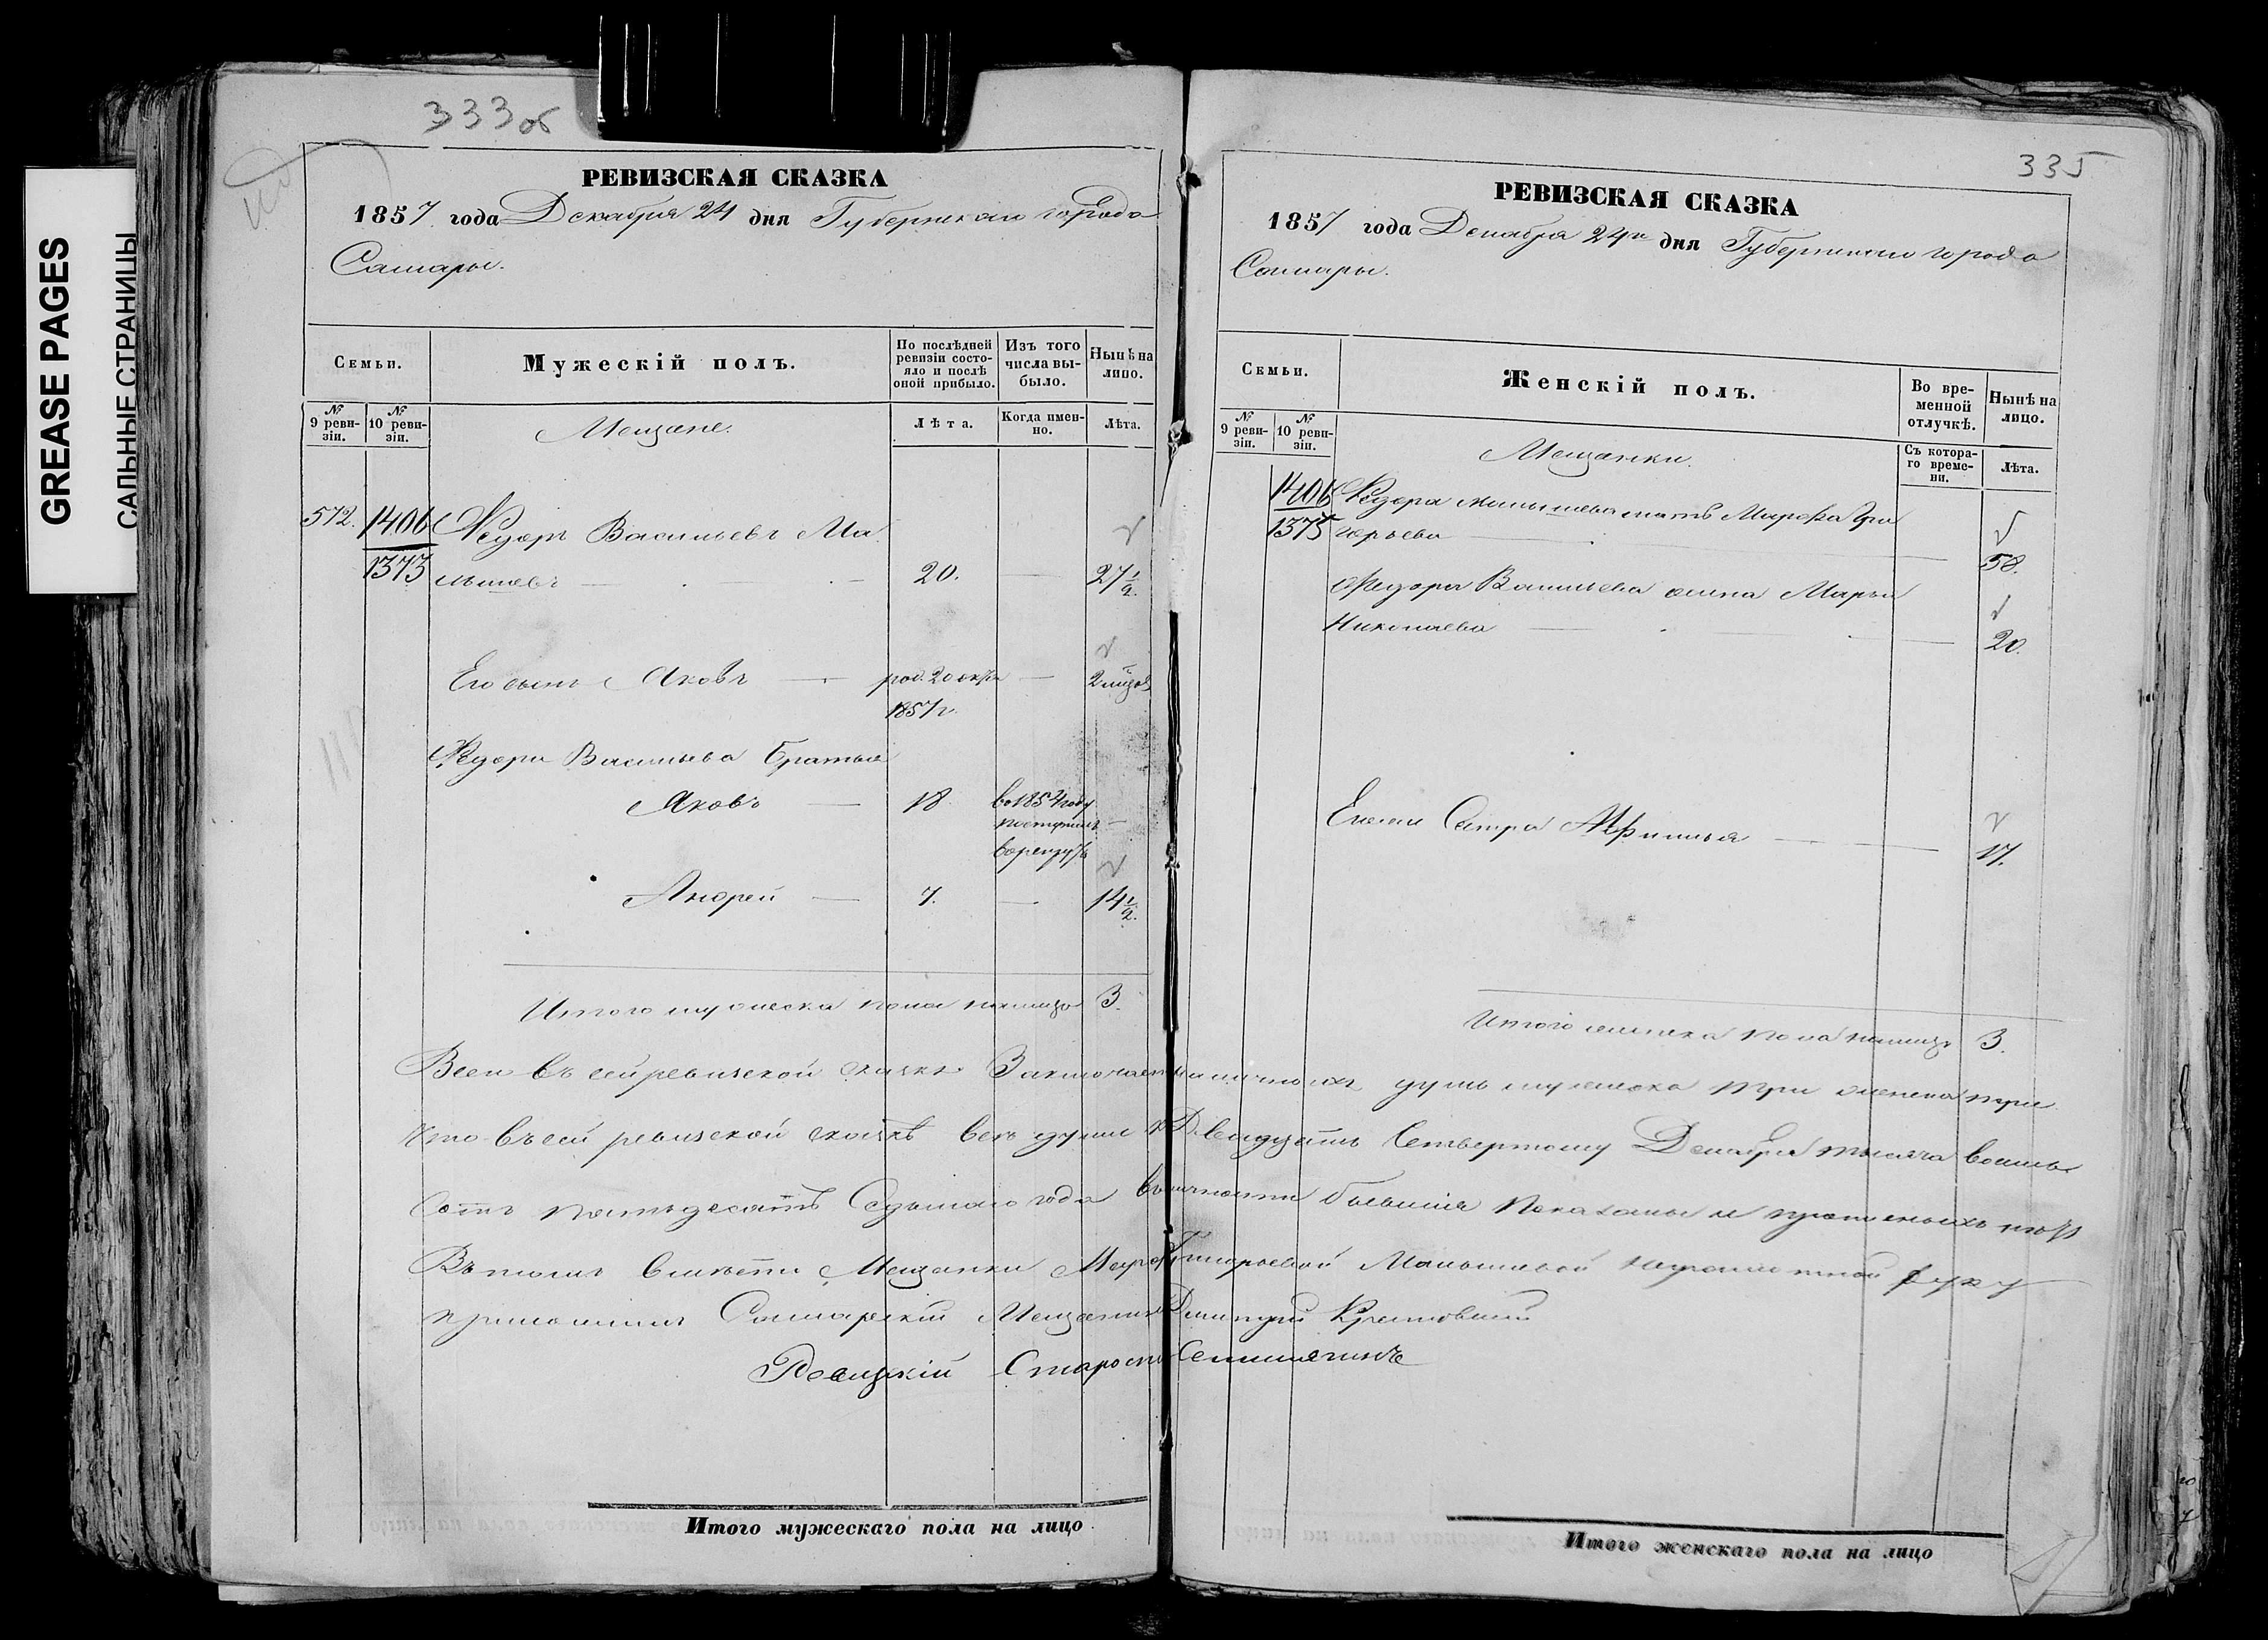 GREASE PAGES
САЛЬНЫЕ СТРАНИЦЫ
333об
РЕВИЗСКАЯ СКАЗКА
1857 года Декабря 24 дня Губернскаго города
Самары.
Семьи.
Мужескій полъ.
По послѣдней ревизіи состояло и послѣ оной прибыло.
Изъ того числа выбыло.
Нынѣ на лицо.
№ 9 ревизіи.
№ 10 ревизіи.
Мещане.
Лѣта.
Когда именно.
Лѣта.
572. 1406 Федоръ Васильевъ Ма
1373 лышевъ — 20. — 27 1/2.
Его сынъ Яковъ — род. 20 окт — 2 мѣс
1857 г.
Федора Васильева братья
Яковъ — 18 въ 1854 году
поступилъ —
в рекруты
Андрей — 7. — 14 1/2.
Итого мужеска пола налицо 3.
335
РЕВИЗСКАЯ СКАЗКА
1857 года Декабря 24 дня Губернскаго города
Самары.
Семьи.
Женскій полъ.
Во временной отлучкѣ.
Нынѣ на лицо.
№ 9 ревизіи.
№ 10 ревизіи.
Мещанки.
Съ котораго времени.
Лѣта.
1406 Федора Малышева мать Марфа Гри
1373 горьева — 58.
Федора Васильева жена Марья
Николаева — 20.
Сестра Афимья — 17.
Итого женска пола налицо 3.
Всего въ сей ревизской сказкѣ Заключается наличныхъ душъ мужеска три женска три
Что въ сей ревизской сказкѣ все души къ Двадцать Четвертому Декабря тысяча восемь
сотъ пятьдесятъ Седьмаго года въ наличности бывшія показаны и пропущенныхъ нѣтъ
Въ томъ вместо Мещанки Марфы Григорьевой Малышевой неграмотной руку
приложилъ Самарскій Мещанинъ Дмитрій
Староста
Итого мужескаго пола на лицо
Итого женскаго пола на лицо